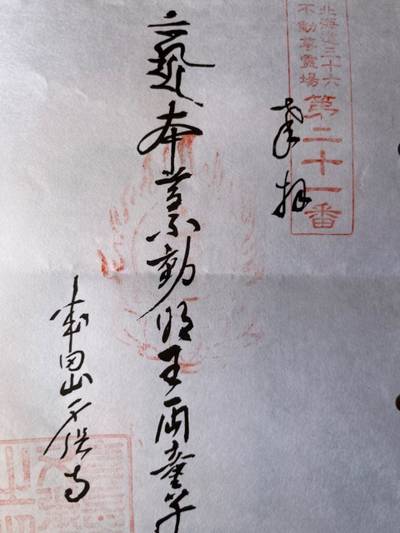 北海道三十六
不動尊霊場
第二十一番
奉拝
本尊不動明王両童子
成田山 寺